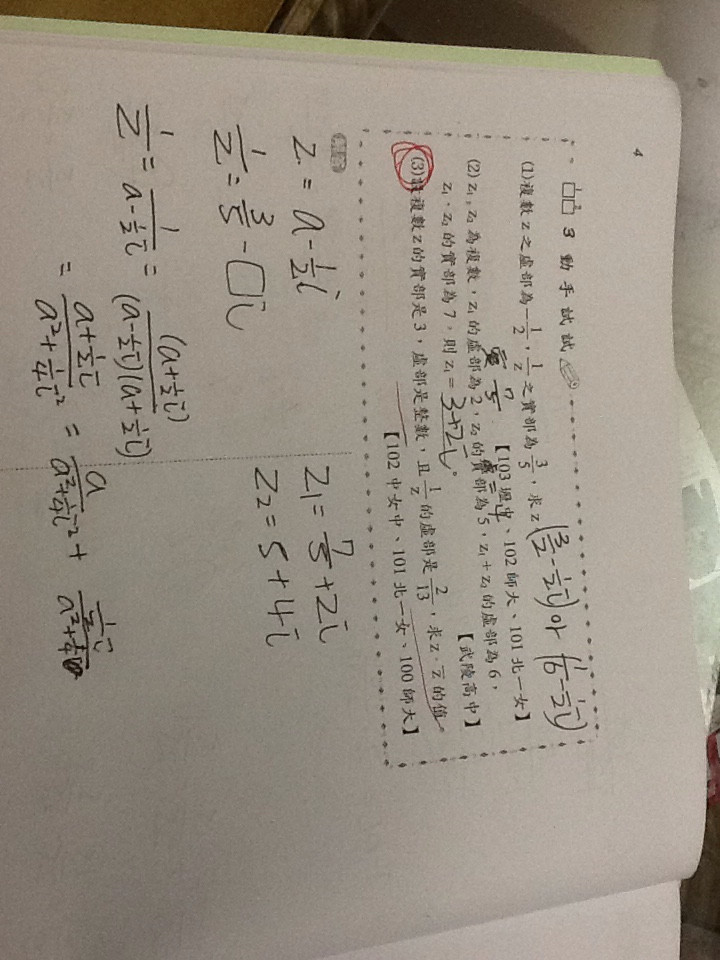 4
3 動手試試
(1)複數z之虛部為-1/2,1/z之實部為3/5,求z (3/2-1/2i) or (1/6-1/2i)
【103 壢中、102 師大、101 北一女】
(2) z₁,z₂為複數,z₁的虛部為2,z₂的實部為5,z₁+z₂的虛部為6,
z₁、z₂的實部為7,則z₁= 3+2i。
【武陵高中】
(3)設複數z的實部是3,虛部是整數,且1/z的虛部是2/13,求z·z̅的值。
【102 中女中、101 北一女、100 師大】
z = a-1/2i
1/z = 3/5 - □i
1/z = 1/(a-1/2i) = (a+1/2i)/((a-1/2i)(a+1/2i))
= (a+1/2i)/(a²+1/4i²) = a/(a²+1/4i²) +
z₁= 7/5+2i
z₂= 5+4i